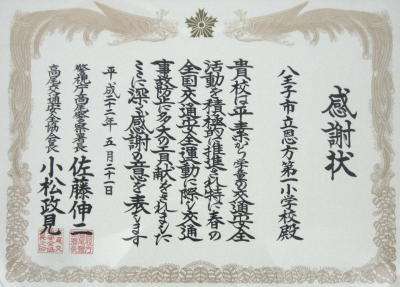 感謝状
八王子市立恩方第一小学校殿
貴校は平素から学童の交通安全
活動を積極的に推進され特に春の
全国交通安全運動に際し交通
事故防止に多大の貢献をされました
ここに深く感謝の意を表します
平成二十二年五月二十一日
警視庁高尾警察署長 佐藤伸二
高尾交通安全協会長 小松政見